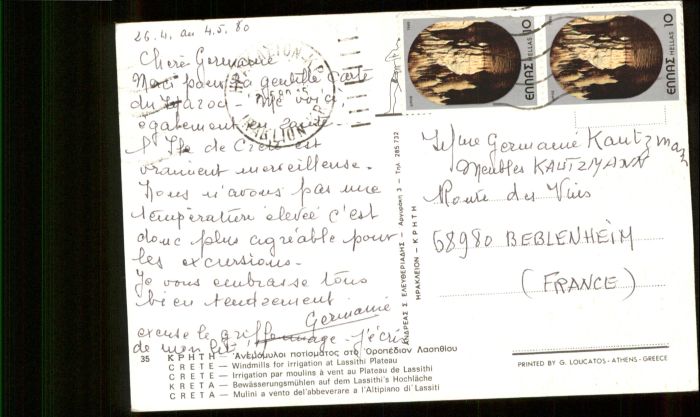 26.4. au 4.5.80
Chère Germaine
Merci pour ta gentille carte
du Maroc - Me voici
également en
L'Ile de Crète est
vraiment merveilleuse.
Nous n'avons pas une
température élevée c'est
donc plus agréable pour
les excursions.
Je vous embrasse tous
bien tendrement
Germaine
excuse le griffonnage - j'écris
de mon lit
35
ΚΡΗΤΗ — Ἀνεμόμυλοι ποτίσματος στό Ὀροπέδιον Λασηθίου
CRETE — Windmills for irrigation at Lassithi Plateau
CRETE — Irrigation par moulins à vent au Plateau de Lassithi
KRETA — Bewässerungsmühlen auf dem Lassithi's Hochläche
CRETA — Mulini a vento del'abbeverare a l'Altipiano di Lassiti
ΑΝΔΡΕΑΣ Σ. ΕΛΕΥΘΕΡΙΑΔΗΣ - Αργυράκη 3 - Τηλ. 285 732
ΗΡΑΚΛΕΙΟΝ - ΚΡΗΤΗ
ΕΛΛΑΣ HELLAS 10
ΕΛΛΑΣ HELLAS 10
Germaine Kautzmann
Meubles KAUTZMANN
Route des Vins
68980 BEBLENHEIM
(FRANCE)
PRINTED BY G. LOUCATOS - ATHENS - GREECE